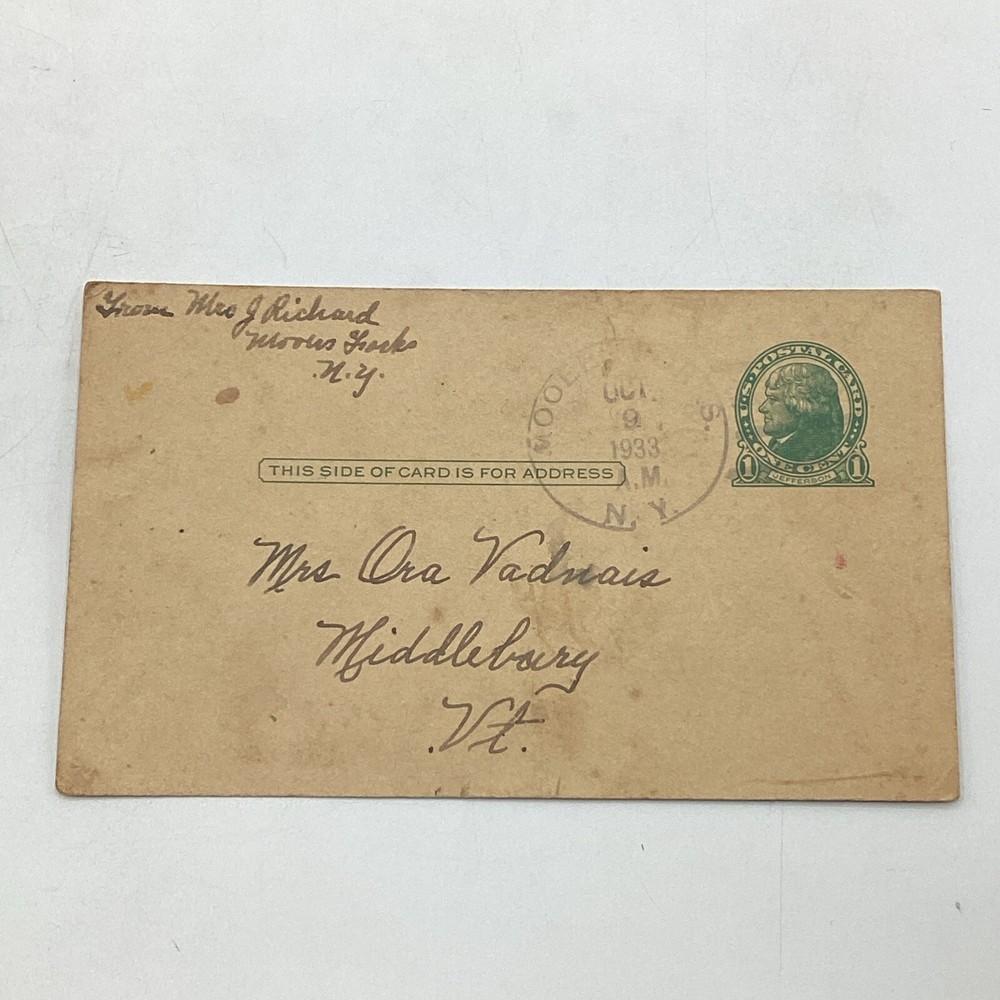 From Mrs J Richard
Mooers Forks
N.Y.
OCT.
9
1933
A.M.
N.Y.
U.S. POSTAL CARD
ONE CENT
1 JEFFERSON 1
THIS SIDE OF CARD IS FOR ADDRESS
Mrs Ora Vadnais
Middlebury
Vt.